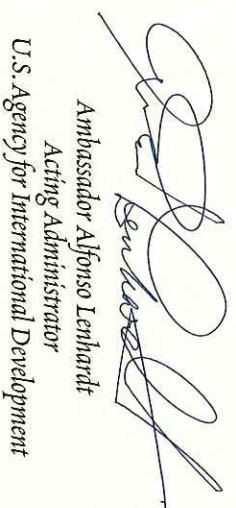 Ambassador Alfonso Lenhardt
Acting Administrator
U.S. Agency for International Development